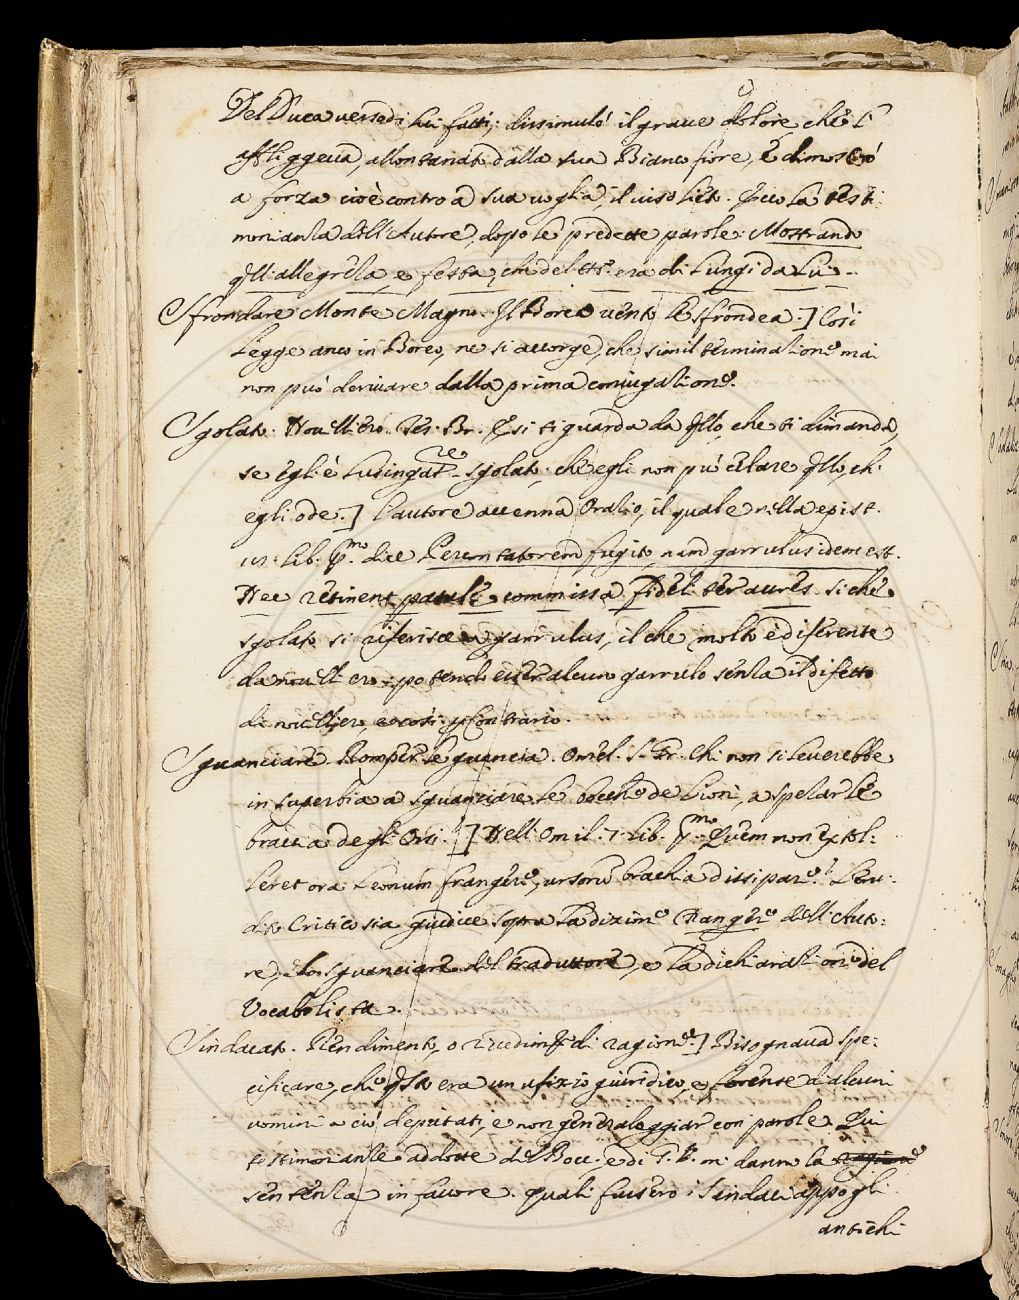 Del Duca verso di lui fatti, dissimulò il graue dolore, che l'
affliggeua, allontanato dalla sua Biancofiore, e dimostrò
a forza cioè contro a sua uoglia il uiso lieto. Ecco la testi:
monianza dell'Autore, dopo le predette parole: Mostrando
qll'allegrezza, e festa, che del era di lungi da Lui.
Sfrondare Monte Magno. Il Borea uento le sfrondea.] Così
legge anco in Boreo, ne si accorge, che simil terminatione mai
non può deriuare dalla prima coniugatione.
Sgolato. Nouelliero. Tes. Br. E si ti guarda da qllo, che ti dimanda,
se egli è lusingatre sgolato, che egli non può celare qllo, ch.
egli ode.] L'autore accenna Oratio, il quale nella epist.
lib. pmo. dice Percuntatorem fugito, nam garrulus idem est.
Nec retinent patulę commissa fideliter aures. si che
sgolato si riferisce a garrulus, il che molto è diferente
da nouelliero, potendo esser alcuno garrulo senza il difetto
di nouelliero, e così p Contrario.
Sguanciare. Romper le guancia. Omel. S. Gr. Chi non si leuerebbe
in superbia a sguanciare le bocche de Lioni, a spezar le
braccia degli Orsi.] Nell'Omil. 7. Lib. pmo. Quem non extol:
leret ora Leonum frangere, ursorum brachia dissipare. L'eru:
dito Critico sia giudice sopra la dizione frangere dell'Auto:
re, lo sguanciare del traduttore, e la dichiaratione del
Vocabolista.
Sindacato. Rendimento, o riuedimto di ragione.] Bisognaua spe:
cificare, che qsto era un ufizio giuridico, e forense d'alcuni
uomini a ciò deputati, e non generaleggiar con parole. Qui
testimonianze addotte del Bocc. e di mi danno la
sentenza in fauore. quali fussero i Sindaci appo gli
antichi